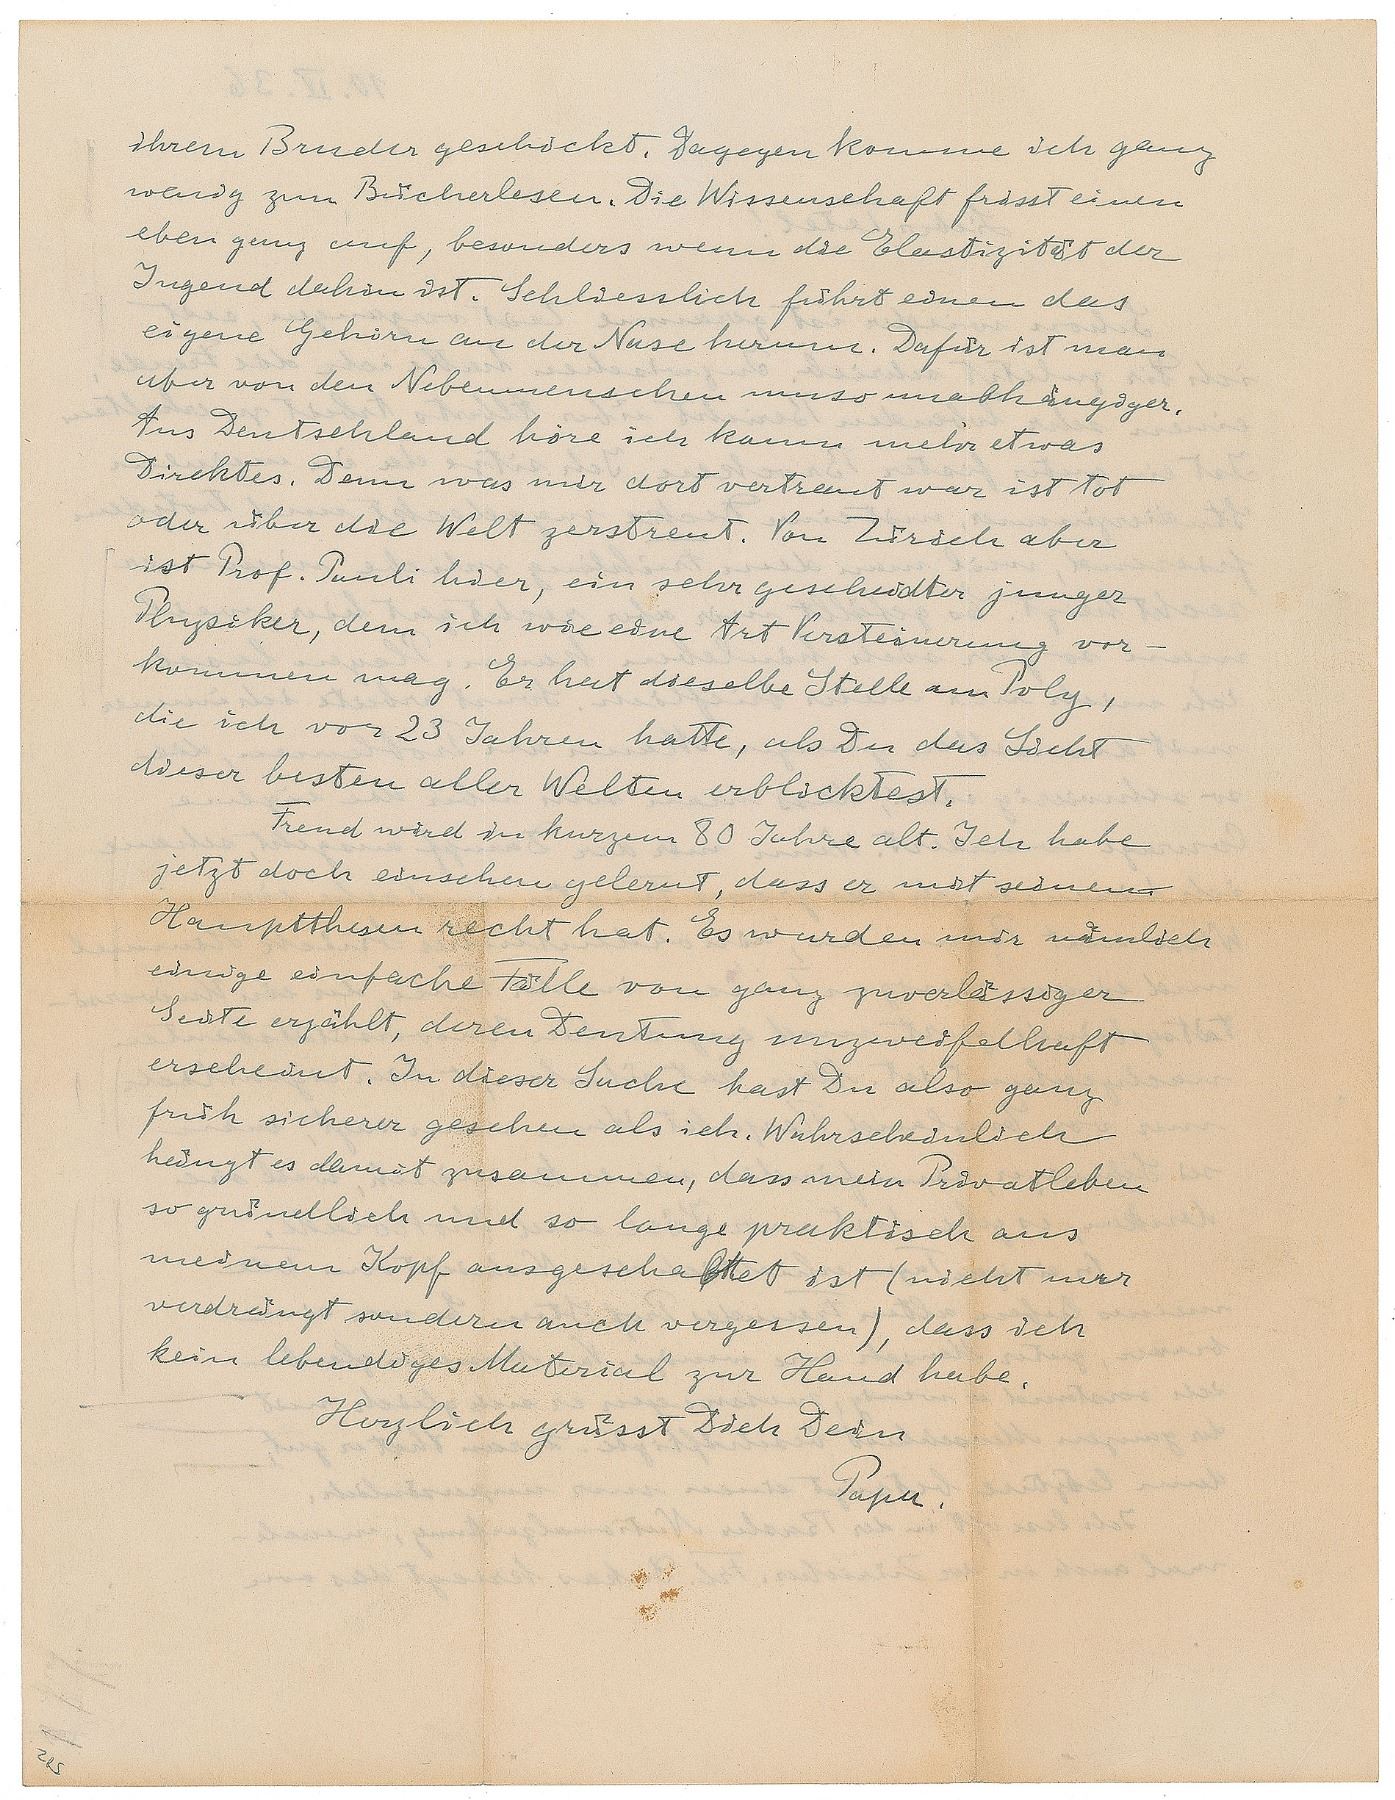 ihrem Bruder geschickt. Dagegen komme ich ganz
wenig zum Bücherlesen. Die Wissenschaft frisst einen
eben ganz auf, besonders wenn die Elastizität der
Jugend dahin ist. Schliesslich führt einen das
eigene Gehirn an der Nase herum. Dafür ist man
aber von den Nebenmenschen umso unabhängiger.
Aus Deutschland höre ich kaum mehr etwas
Direktes. Denn was mir dort vertraut war ist tot
oder über die Welt zerstreut. Von Zürich aber
ist Prof. Pauli hier, ein sehr gescheidter junger
Physiker, dem ich wie eine Art Versteinerung vor-
kommen mag. Er hat dieselbe Stelle am Poly,
die ich vor 23 Jahren hatte, als Du das Licht
dieser besten aller Welten erblicktest.
Freud wird in kurzem 80 Jahre alt. Ich habe
jetzt doch einsehen gelernt, dass er mit seinen
Hauptthesen recht hat. Es wurden mir nämlich
einige einfache Fälle von ganz zuverlässiger
Seite erzählt, deren Deutung unzweifelhaft
erscheint. In dieser Sache hast Du also ganz
früh sicherer gesehen als ich. Wahrscheinlich
hängt es damit zusammen, dass mein Privatleben
so gründlich und so lange praktisch aus
meinem Kopf ausgeschaltet ist (nicht nur
verdrängt sondern auch vergessen), dass ich
kein lebendiges Material zur Hand habe.
Herzlich grüsst Dich Dein
Papa.